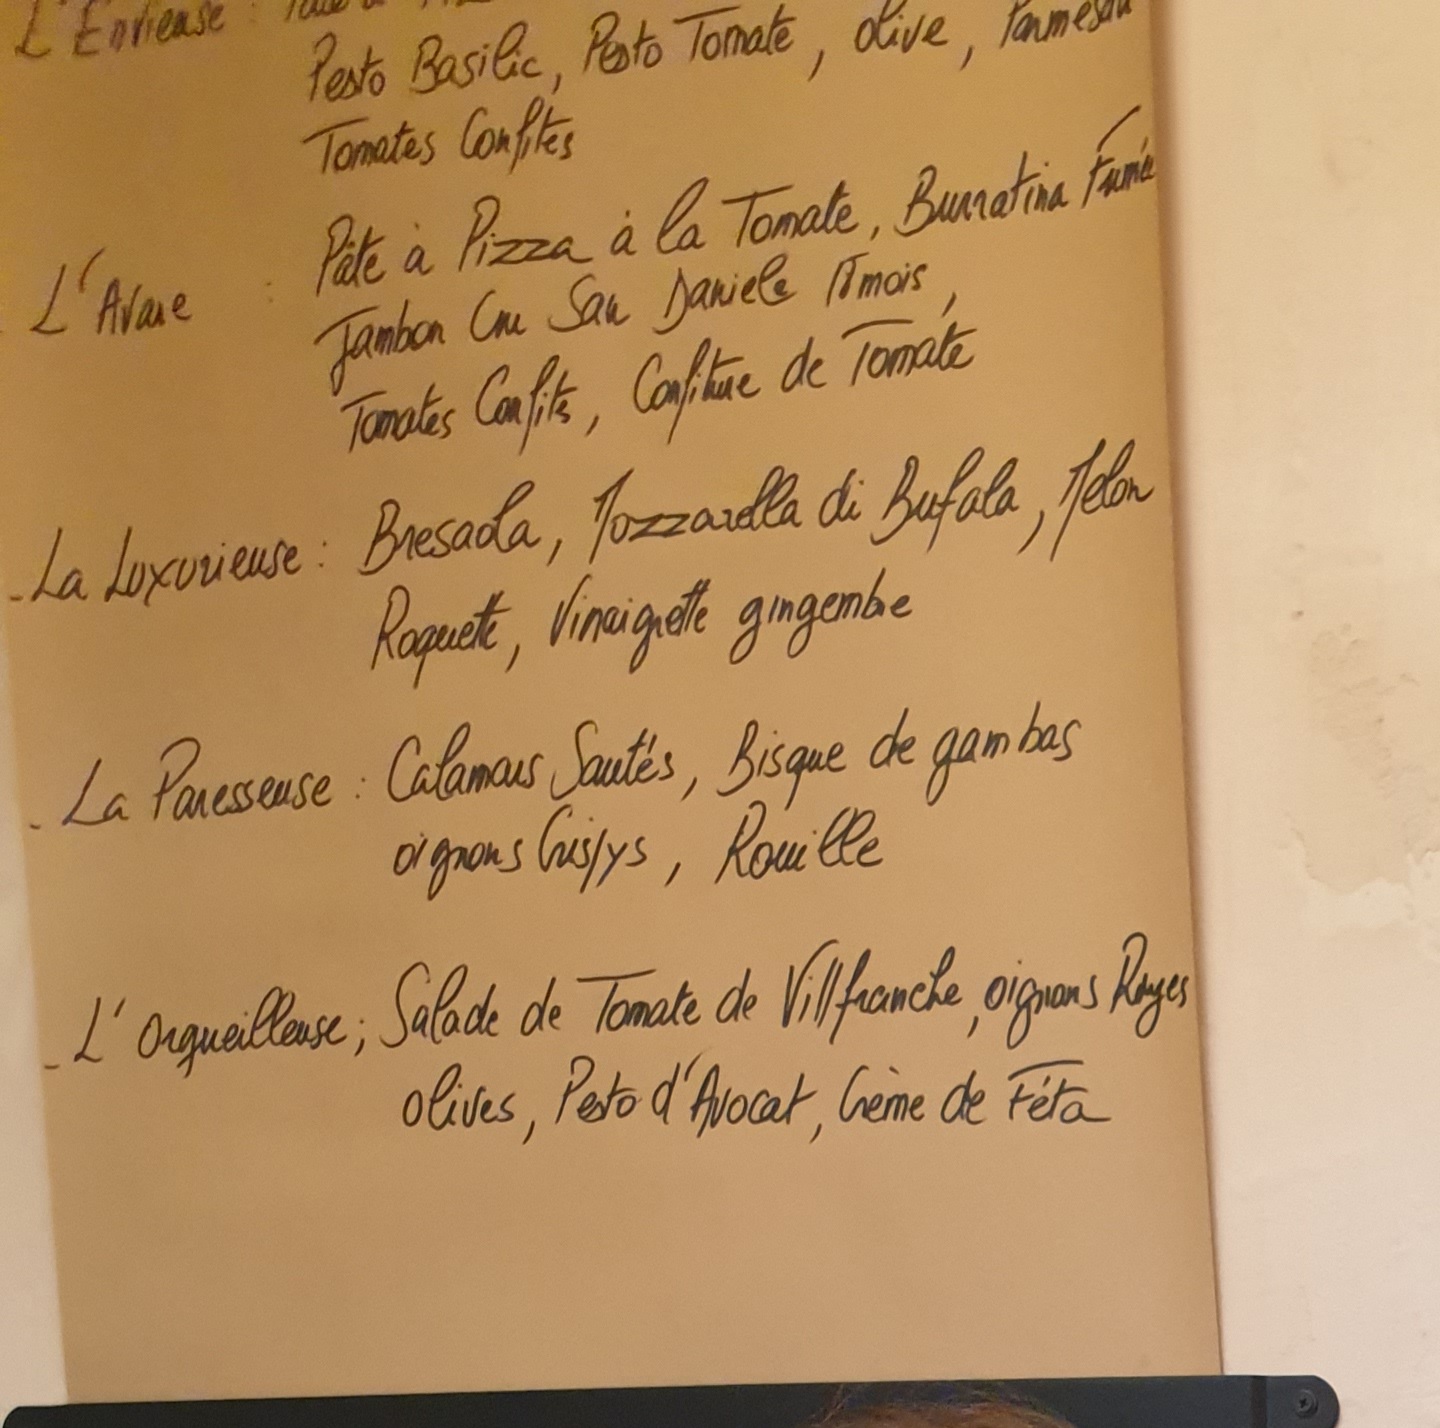 L'Envieuse :
Pesto Basilic, Pesto Tomate, olive, Parmesan
Tomates Confites
L'Avare : Pâte à Pizza à la Tomate, Burratina Fumée
Jambon Cru San Daniele mois,
Tomates Confits, Confiture de Tomate
- La Luxurieuse : Bresaola, Mozzarella di Bufala, Melon
Roquette, Vinaigrette gingembre
- La Paresseuse : Calamars Sautés, Bisque de gambas
oignons Crispys, Rouille
- L'Orgueilleuse ; Salade de Tomate de Villfranche, oignons Rouges
olives, Pesto d'Avocat, Crème de Féta